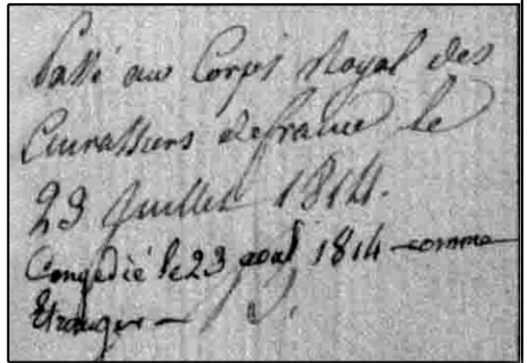 Passé au Corps Royal des
Cuirassiers de france le
23 Juillet 1814.
Congédié le 23 aoal 1814 comme
Etranger